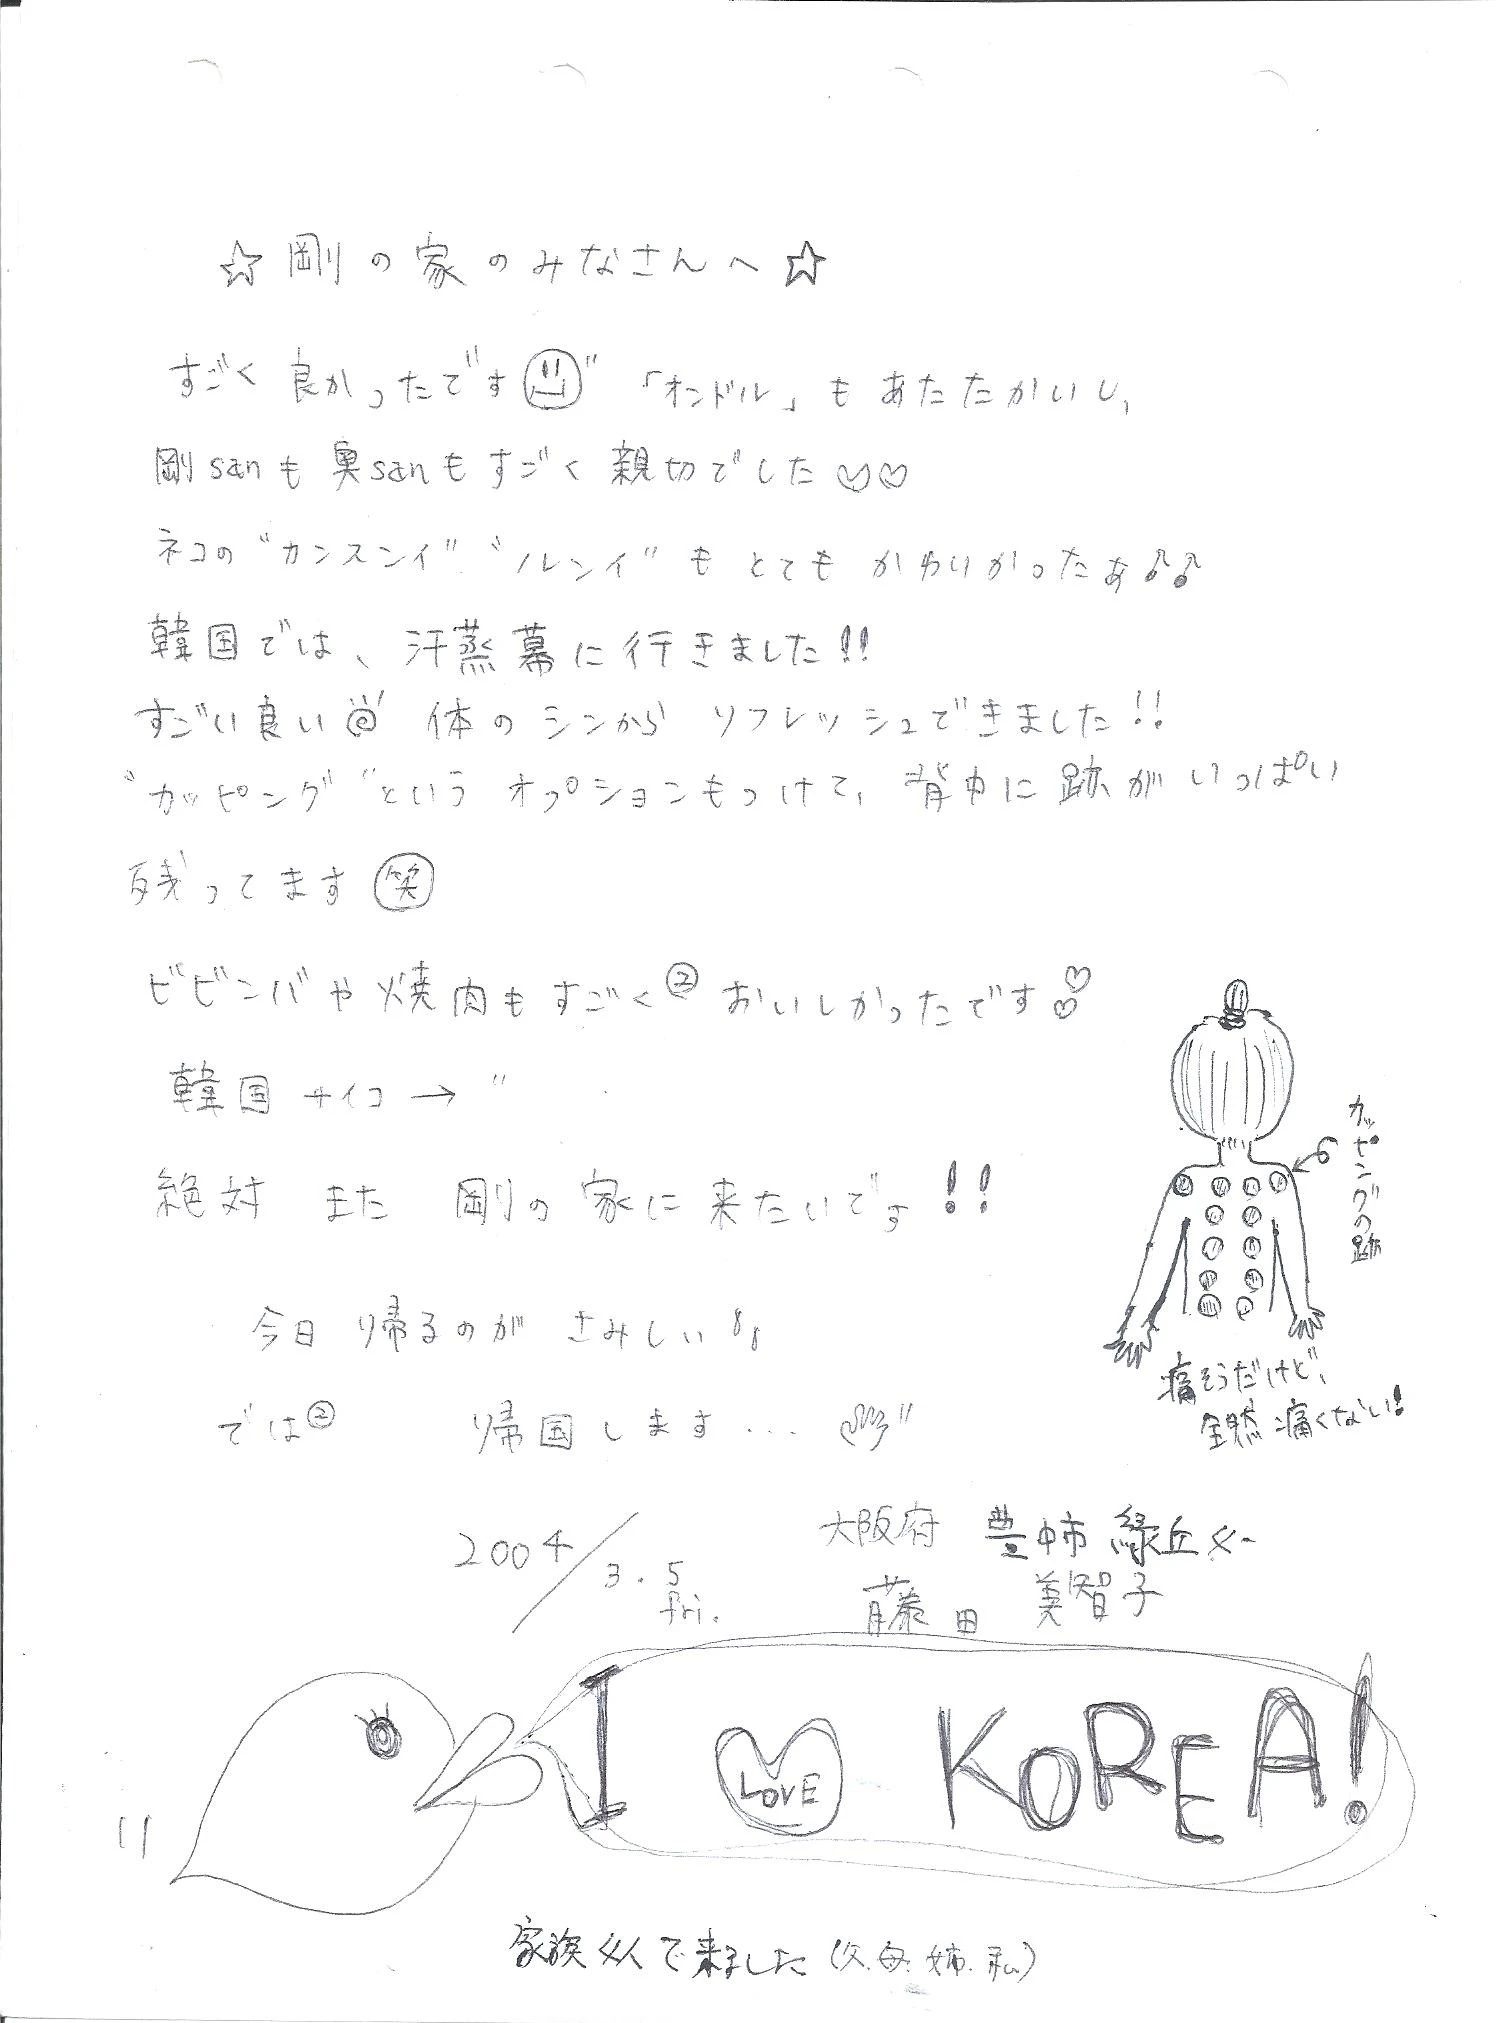 ☆剛の家のみなさんへ☆
すごく良かったです "「オンドル」もあたたかいし、
剛sanも奥sanもすごく親切でした♡♡
ネコの"カンスンイ" "ルンイ"もとてもかわいかったぁ♪♪
韓国では、汗蒸幕に行きました!!
すごい良い 体のシンから リフレッシュできました!!
"カッピング"というオプションもつけて、背中に跡がいっぱい
残ってます㊗笑
ビビンバや焼肉もすごく②おいしかったです♡♡
韓国サイコ→"
絶対 また 剛の家に来たいです!!
今日帰るのが さみしい
では② 帰国します...
カッピングの跡
痛そうだけど、
全然痛くない!
大阪府 豊中市 緑丘
2004/3.5 fri.
藤田 美智子
I LOVE KOREA!
家族4人で来ました(父.母.姉.私)